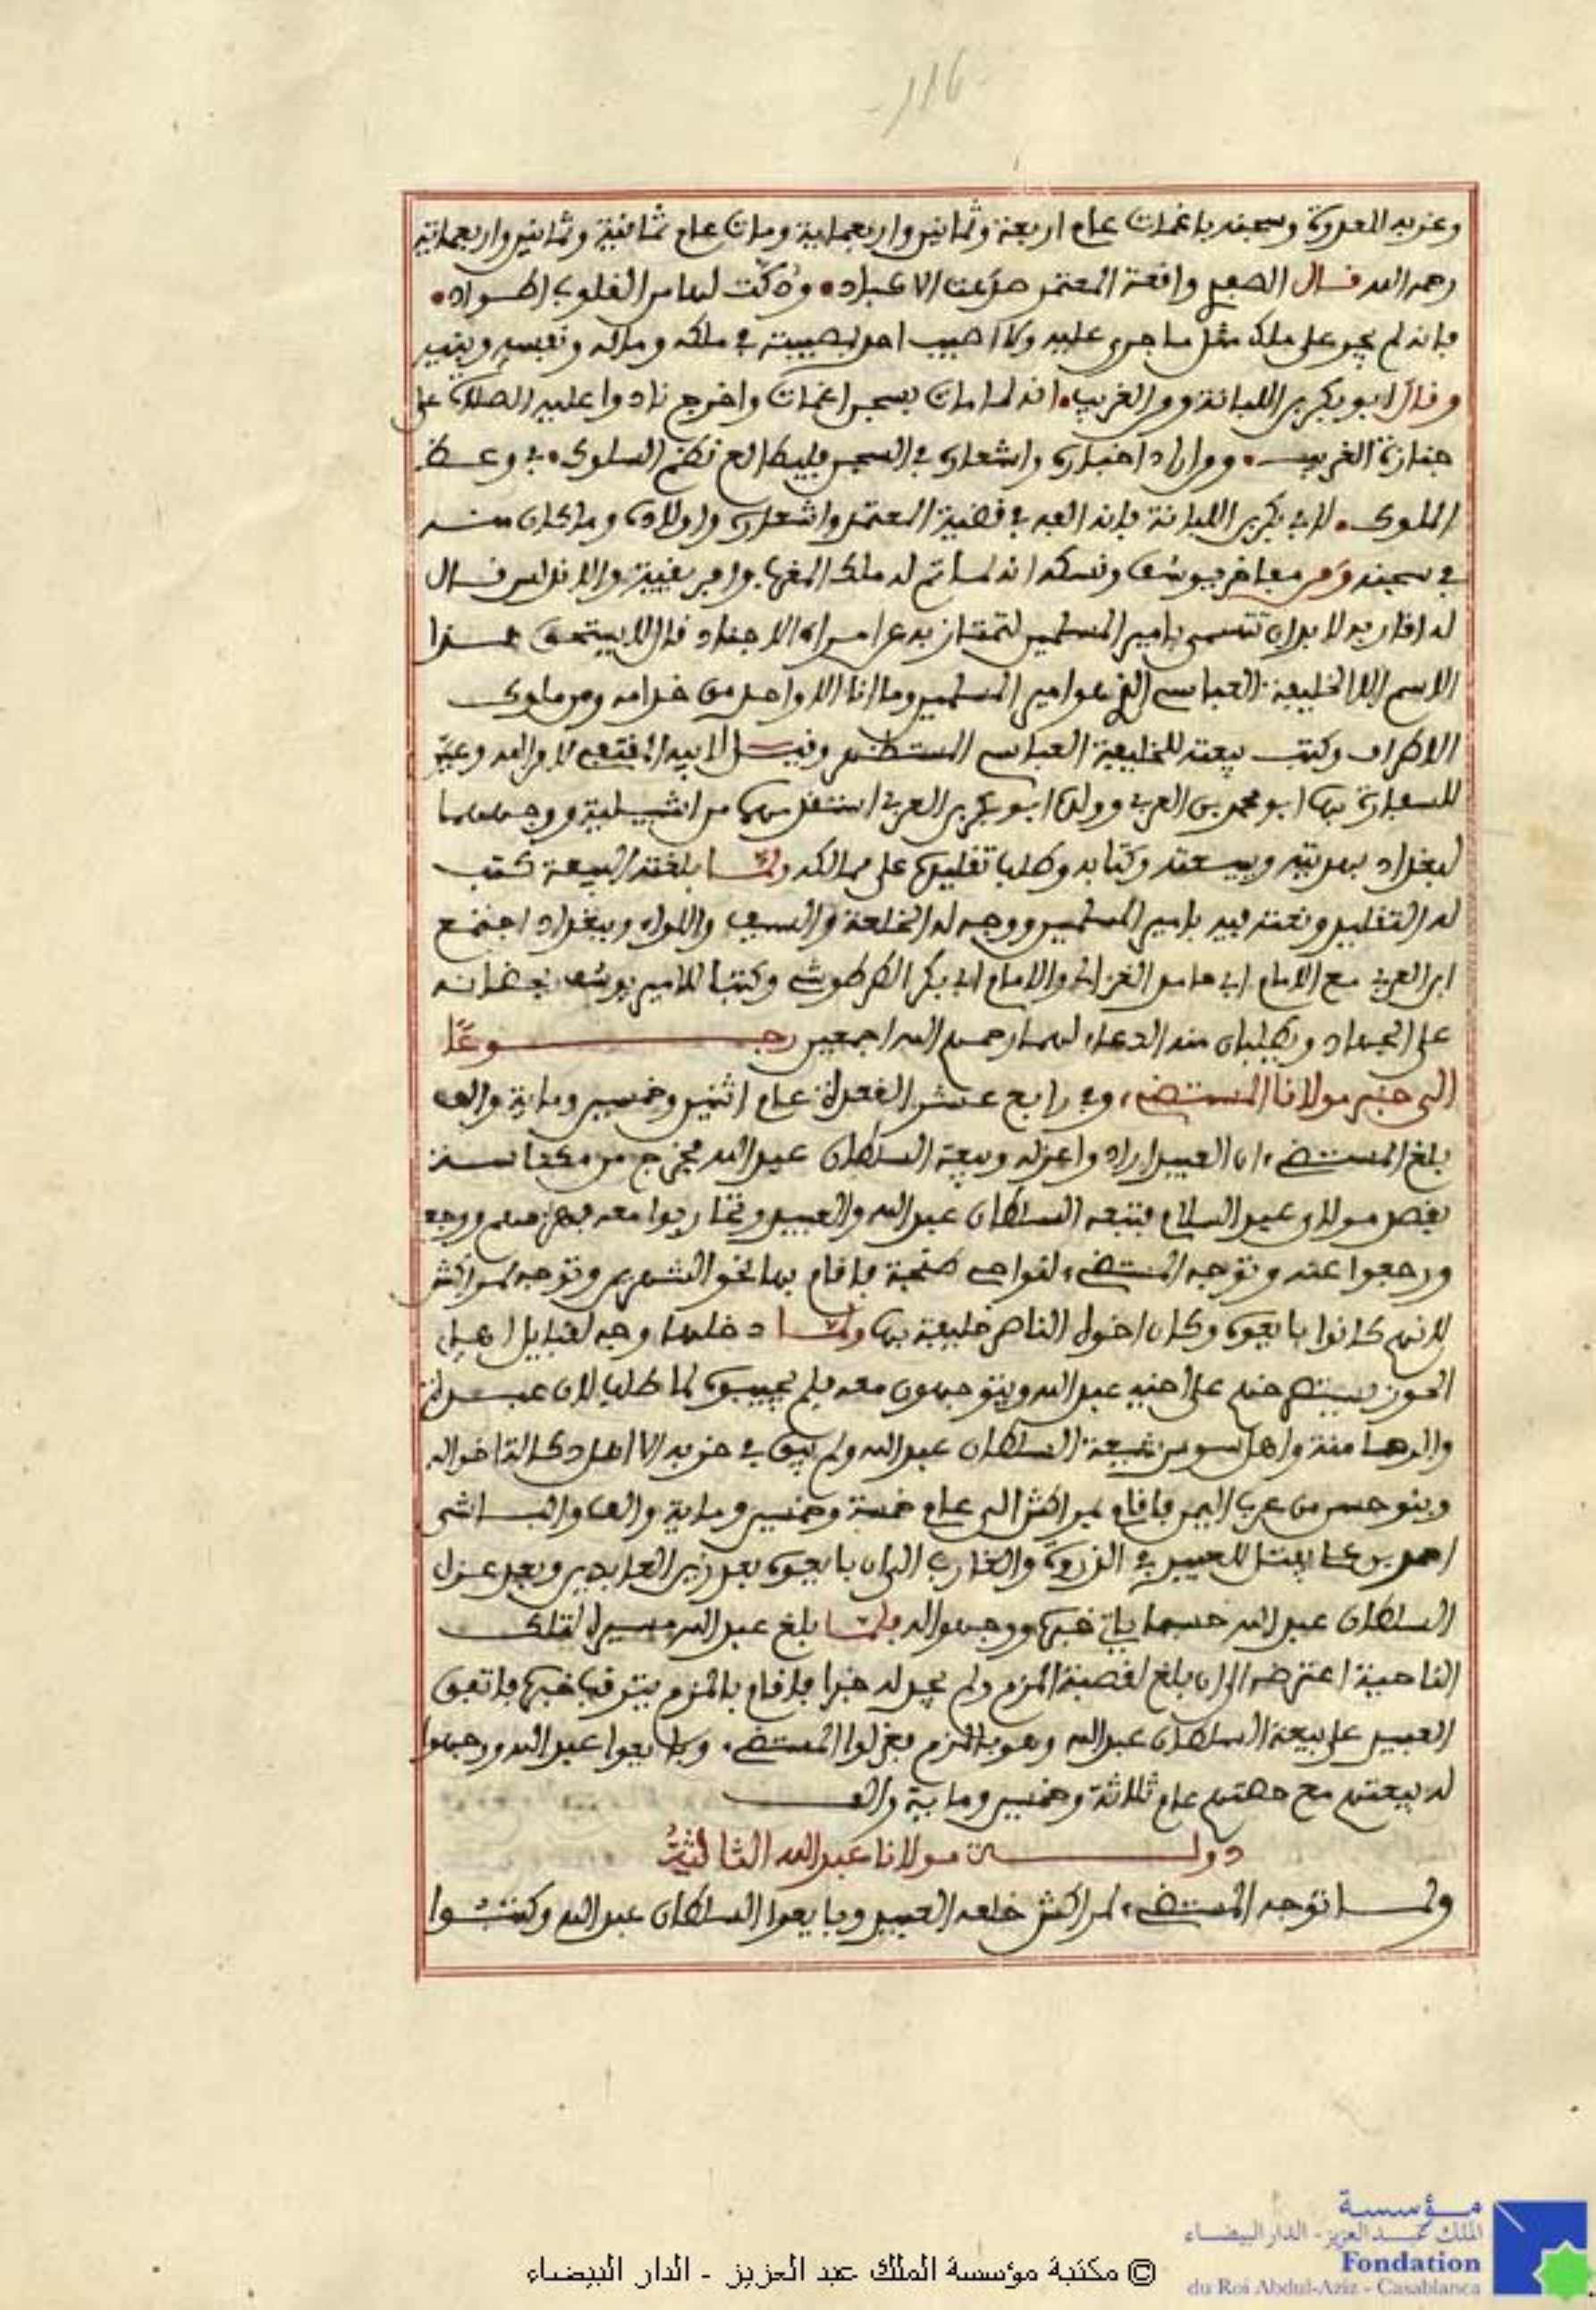 116
وغربه العدوة وسجنه باغمات عام اربعة وثمانين واربعماية ومات عام ثمانية وثمانين واربعماية
رحمه الله قال الصفدي واقعة المعتمد صدعت الاكباد، ودكت لها من القلوب اطواد،
فانه لم يجر على ملك مثل ما جرى عليه ولا اصيب احد بمصيبته في ملكه وماله ونفسه وبنيه
وقال ابو بكر بن اللبانة وهو الغريب، انه لما مات بسجن اغمات واخرج نادوا عليه الصلاة على
جنازة الغريب، ومن اراد اخباره واشعاره في السجن فليطالع نظم السلوك، في وعظ
الملوك، لابي بكر بن اللبانة فانه الفه في قضية المعتمد واشعاره واولاده وما كان منه
في سجنه ومن مفاخر يوسف ونسكه انه لما تم له ملك المغرب وافريقية والاندلس قال
له اقاربه لا بد ان تتسمى بامير المسلمين لتمتاز به عن امراء الاجناد قال لا يستحق هذا
الاسم الا الخليفة العباسي الذي هو امير المسلمين وما انا الا واحد من خدامه ومن ملوك
الاطراف وكتب بيعته للخليفة العباسي المستظهر وقيل لابيه المقتدي لامر الله وعين
للسفارة بها ابو محمد بن العربي وولده ابو بكر بن العربي استقدمهما من اشبيلية ووجههما
لبغداد بهديته وبيعته وكتابه وطلبا تقليده على ممالكه ولما بلغته البيعة كتب
له التقليد ونعته فيه بامير المسلمين ووجه له الخلعة والسيف واللواء وببغداد اجتمع
ابن العربي مع الامام ابي حامد الغزالي والامام ابي بكر الطرطوشي وكتبا للامير يوسف يحضانه
على الجهاد ويطلبان منه الدعاء لهما رحمهم الله اجمعين رجوعا
الى خبر مولانا المستضيء، وفي رابع عشر القعدة عام اثنين وخمسين وماية والف
بلغ المستضيء ان العبيد ارادوا عزله وبيعة السلطان عبد الله فخرج من مكناسة
بقصد مولاي عبد السلام فتبعه السلطان عبد الله والعبيد وتحاربوا معه فهزمهم ووجع
ورجعوا عنه وتوجه المستضيء لنواحي طنجة فاقام بها نحو الشهرين وتوجه لمراكش
لانهم كانوا بايعوه وكان اخوه الناصر خليفة بها ولما دخلها وجه لقبايل اهل
الحوز يستصرخهم على اخيه عبد الله ويتوجهون معه فلم يجيبوه لما طلب لان عبدة
والرحامنة واهل سوس شيعة السلطان عبد الله ولم يبق في حزبه الا اهل دكالة اخواله
وبنو حسن من عرب اليمن فاقام بمراكش الى عام خمسة وخمسين وماية والف والباشى
احمد بن علي يفتل للعبيد في الذروة والغارب الى ان بايعوه بعد زين العابدين وبعد عزل
السلطان عبد الله حسبما ياتي خبره ووجهوا له فلما بلغ عبد الله مسيره لتلك
الناحية اعترضه الى ان بلغ لقصبة المزم ولم يجد له خبرا فاقام بالمزم يترقب خبره فاتفق
العبيد على بيعة السلطان عبد الله وهو بالمزم فعزلوا المستضيء، وبايعوا عبد الله ووجهوا
له بيعتهم مع حصتهم عام ثلاثة وخمسين وماية والف
دولة مولانا عبد الله الثالثة
ولما توجه المستضيء لمراكش خلعه العبيد وبايعوا السلطان عبد الله وكتبوا
مؤسسة
الملك عبد العزيز - الدار البيضاء
Fondation
du Roi Abdul-Aziz - Casablanca
© مكتبة مؤسسة الملك عبد العزيز - الدار البيضاء